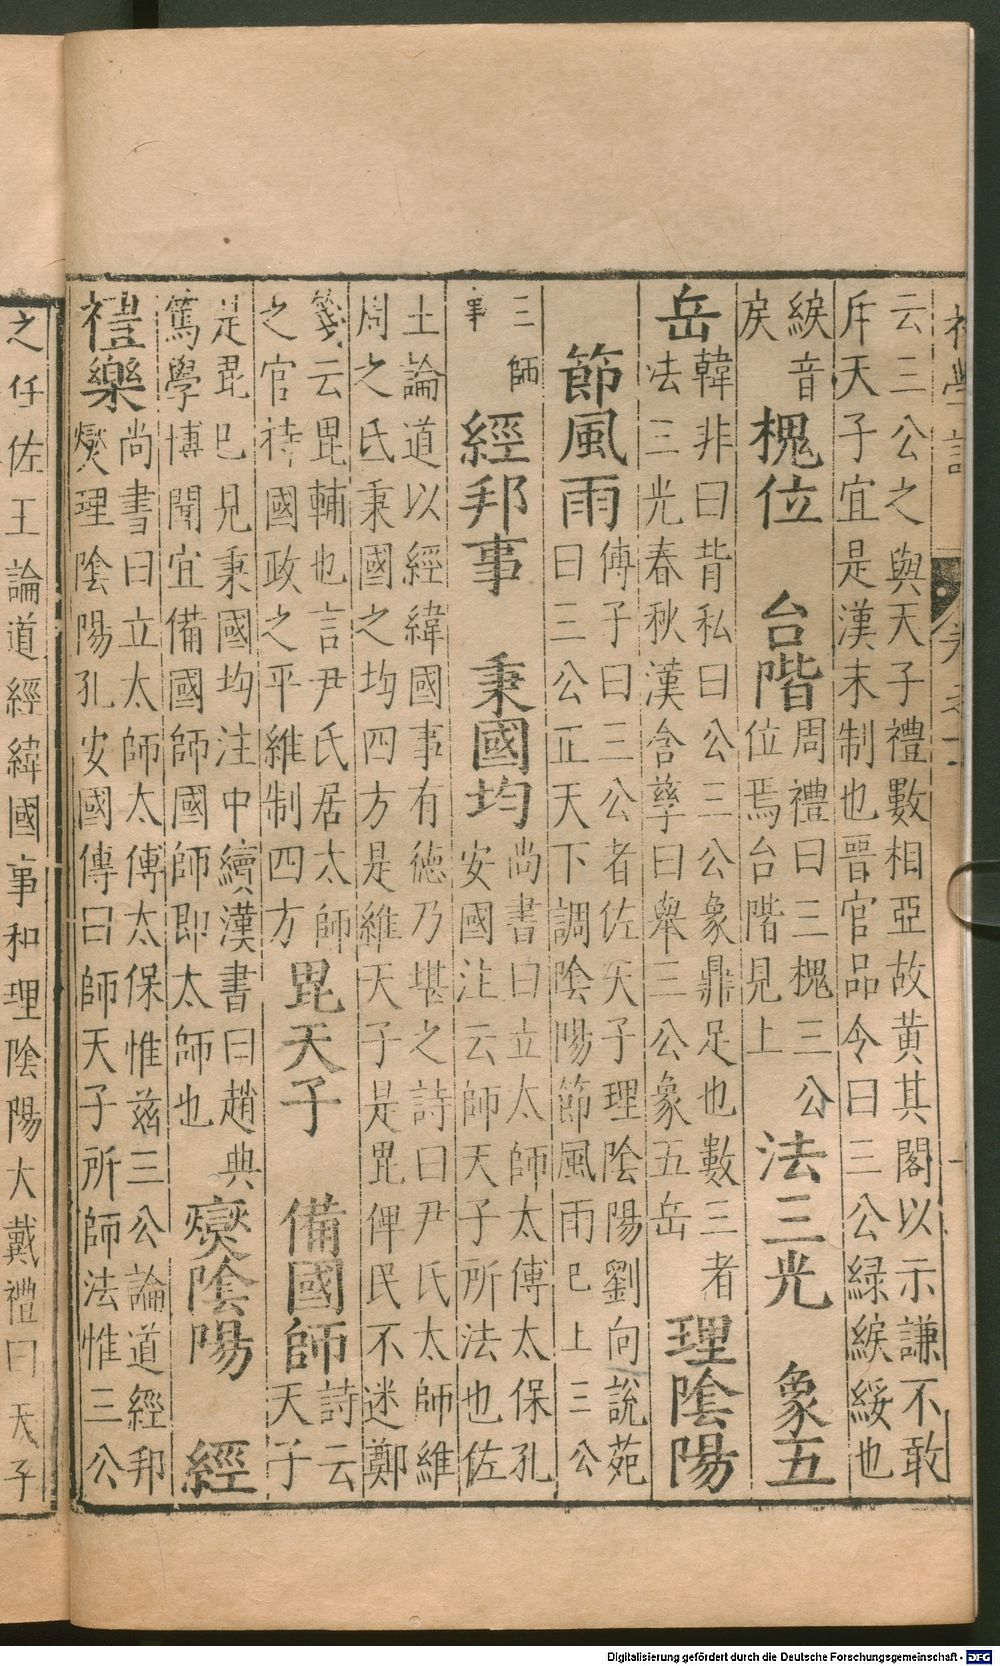 云三公之與天子禮數相亞故黄其閣以示謙不敢
斥天子宜是漢末制也晉官品令曰三公緑綟綬也
綟音
戾
槐位
台階
周禮曰三槐三公
位焉台階見上
法三光
象五
岳
韓非曰背私曰公三公象鼎足也數三者
法三光春秋漢含孳曰舉三公象五岳
理陰陽
節風雨
傅子曰三公者佐天子理陰陽劉向說苑
曰三公正天下調陰陽節風雨已上三公
三師
事
經邦事
秉國均
尚書曰立太師太傅太保孔
安國注云師天子所法也佐
土論道以經緯國事有德乃堪之詩曰尹氏太師維
周之氐秉國之均四方是維天子是毘俾民不迷鄭
箋云毘輔也言尹氏居太師
之官持國政之平維制四方
毘天子
備國師
詩云
天子
是毘已見秉國均注中續漢書曰趙典
篤學博聞宜備國師國師即太師也
燮陰陽
經
禮樂
尚書曰立太師太傅太保惟茲三公論道經邦
燮理陰陽孔安國傳曰師天子所師法惟三公
之任佐王論道經緯國事和理陰陽大戴禮曰天子
Digitalisierung gefördert durch die Deutsche Forschungsgemeinschaft - DFG